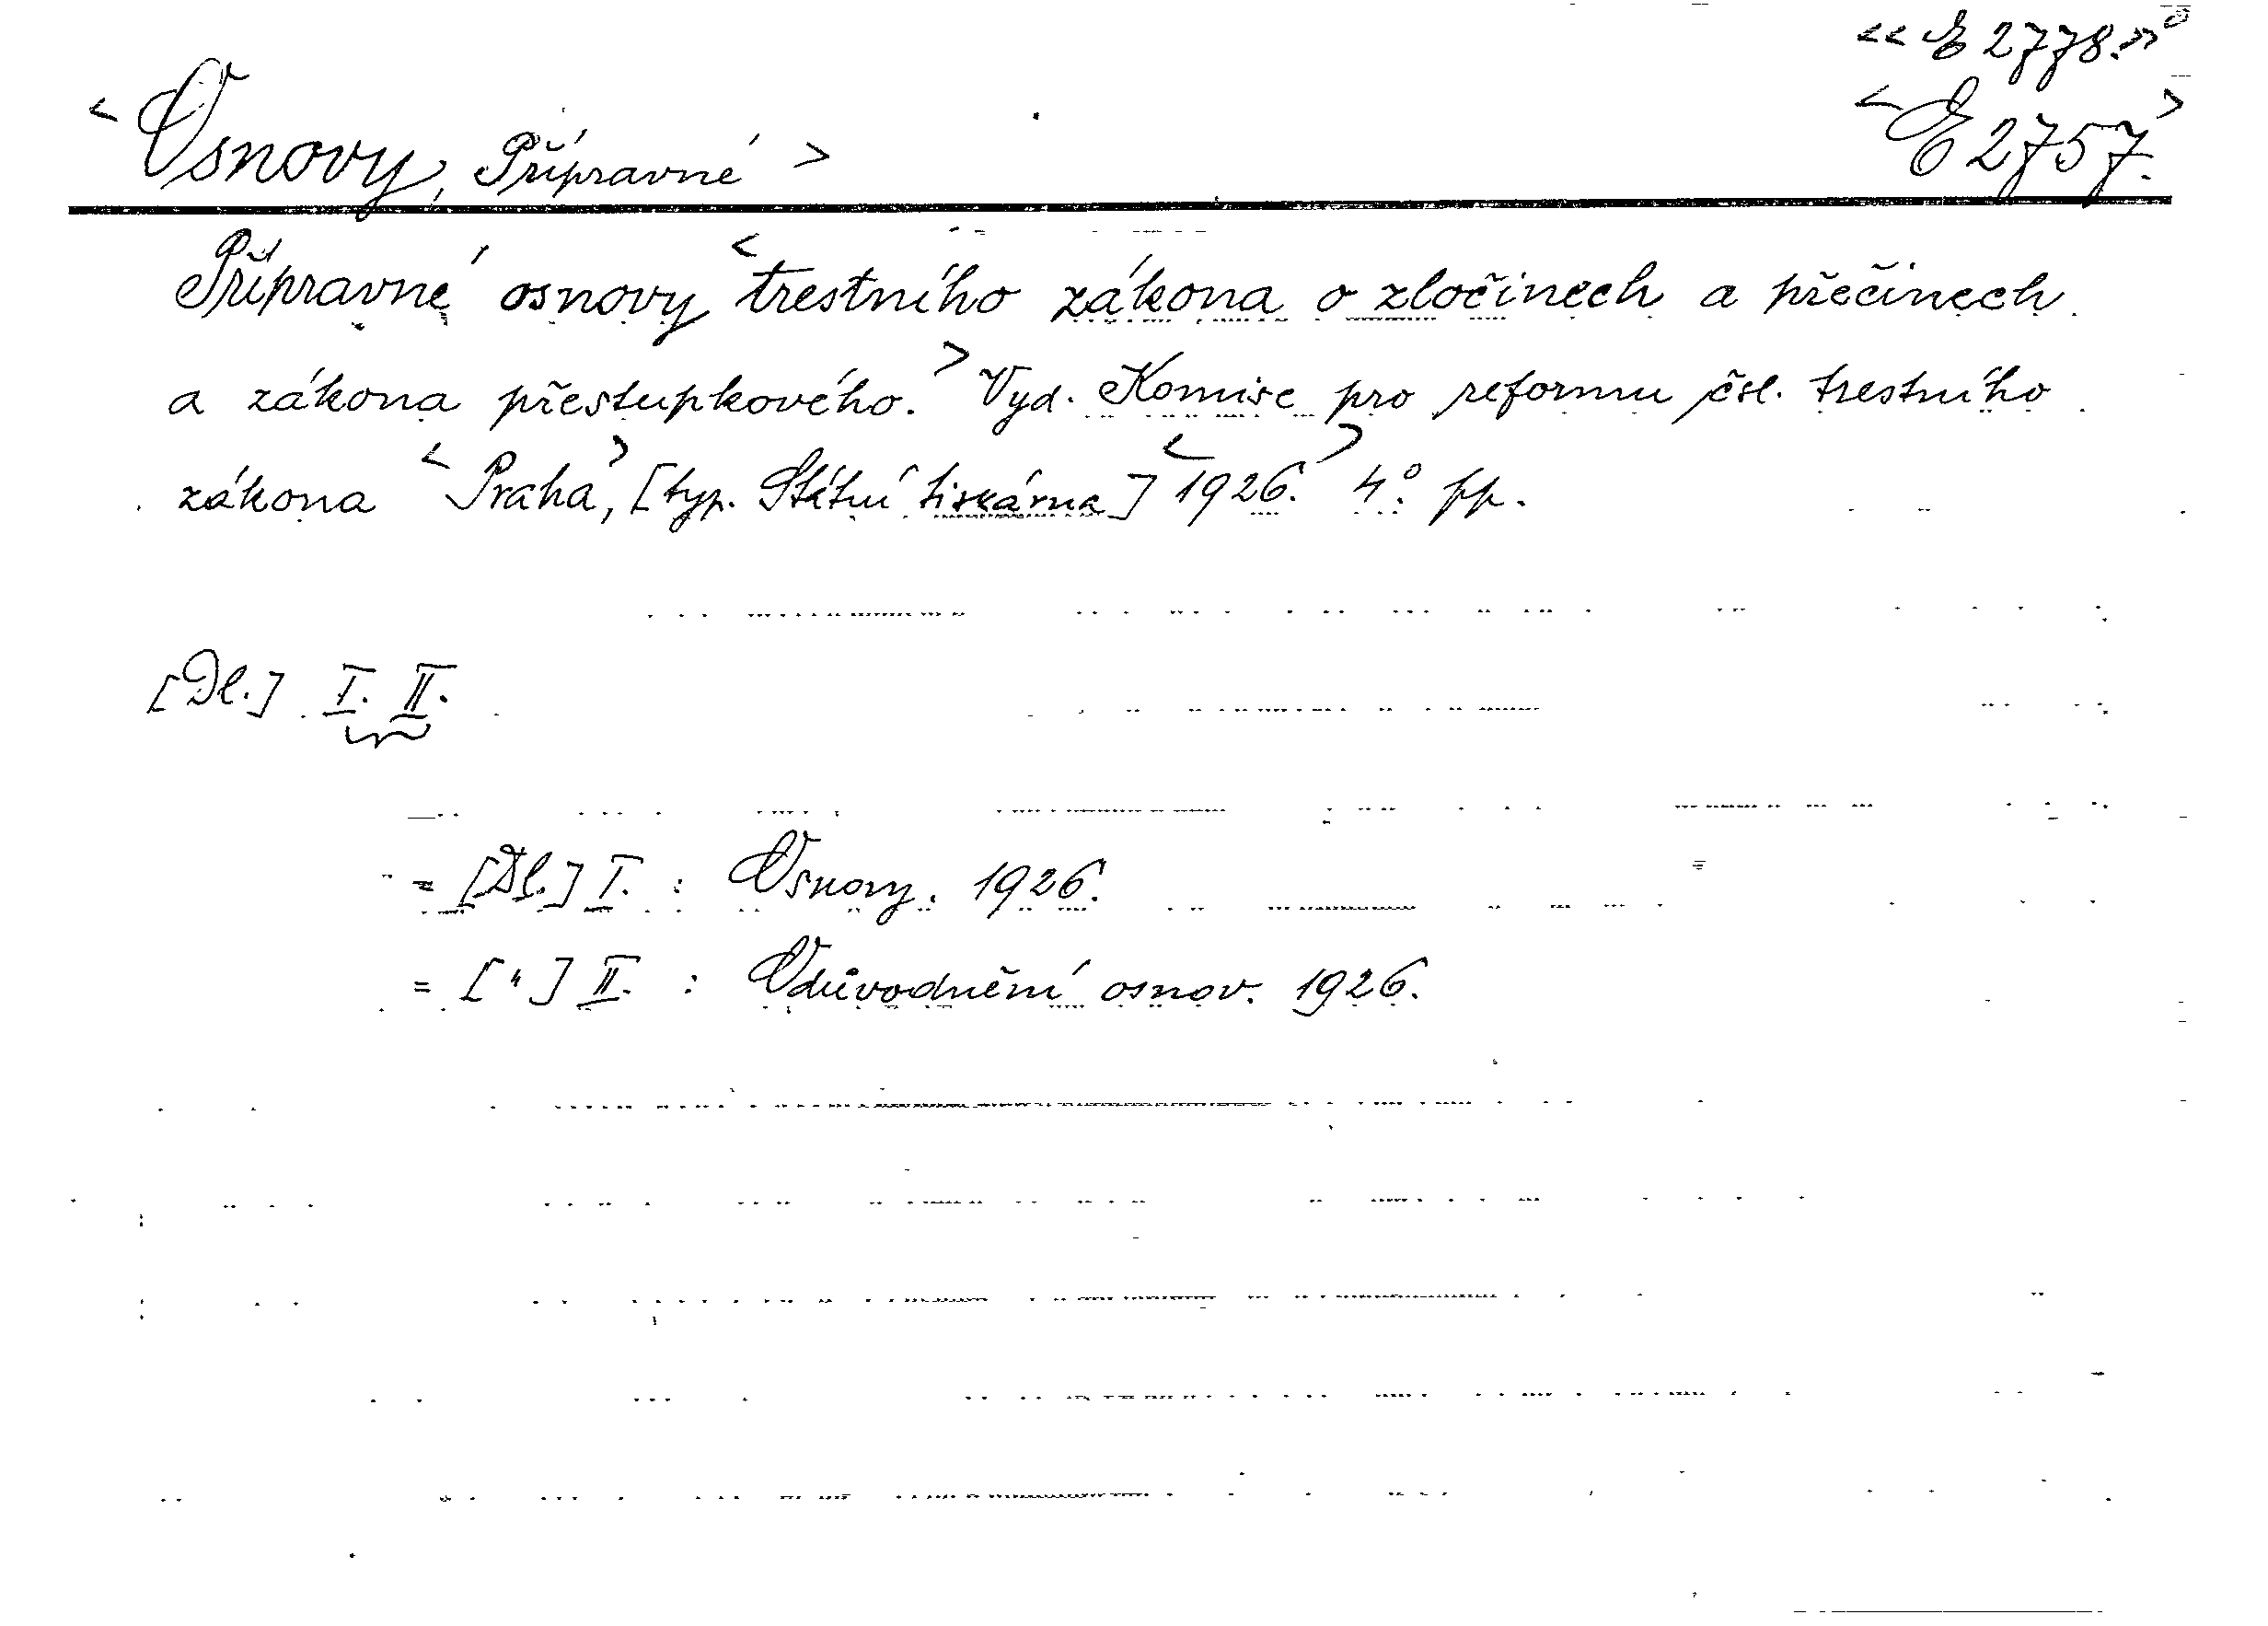 << E 2778.>>
< Osnovy, Přípravné >
< E 2757. >
Přípravné osnovy < trestního zákona o zločinech a přečinech
a zákona přestupkového. > Vyd. Komise pro reformu čsl. trestního
zákona < Praha >, [typ. Státní tiskárna] < 1926. > 4° pp.
[Dl.] I. II.
= [Dl.] I. : Osnovy. 1926.
= ["] II. : Odůvodnění osnov. 1926.